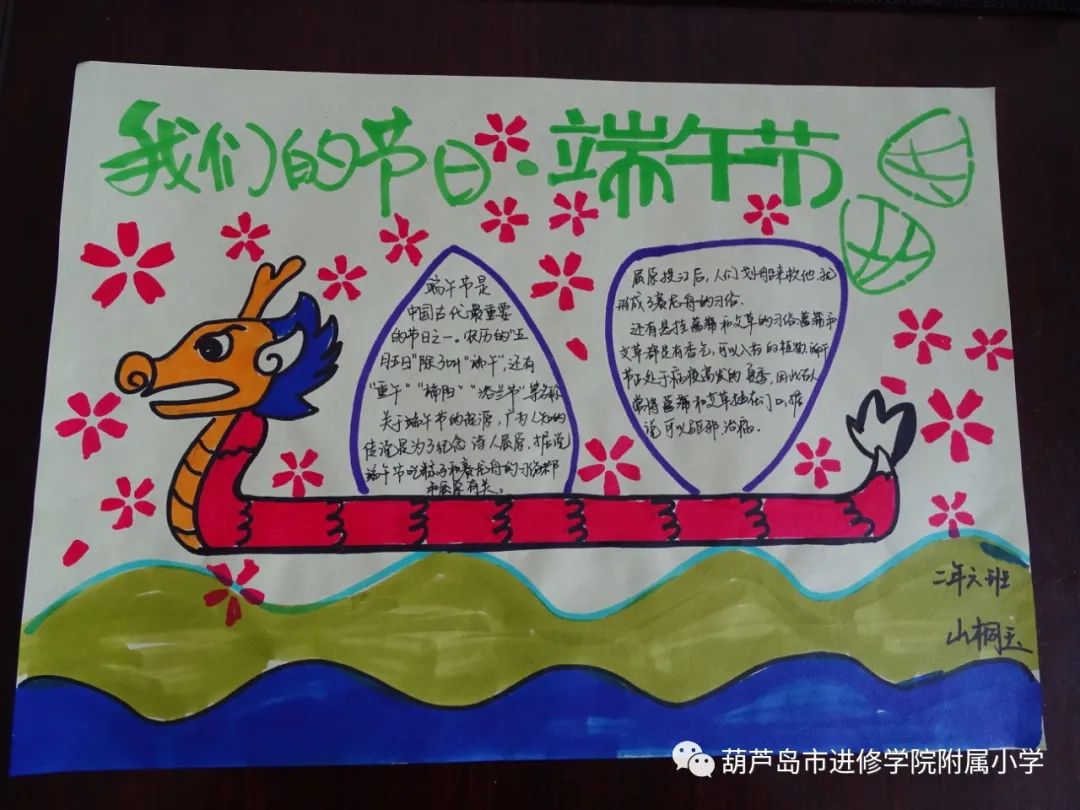 我们的节日·端午节
端午节是
中国古代最重要
的节日之一。农历的"五
月五日"除了叫"端午",还有
"重午" "端阳" "浴兰节"等名称
关于端午节的起源,广为人知的
传说是为了纪念诗人屈原,据说
端午节吃粽子和赛龙舟的习俗都
和屈原有关。
屈原投江后,人们划船来救他,就
形成了赛龙舟的习俗.
还有悬挂菖蒲和艾草的习俗菖蒲和
艾草都是有香气,可以入药的植物,端午
节正处于病疫高发的夏季,因此古人
常将菖蒲和艾草挂在门口,据
说可以驱邪治病.
二年六班
山桐玉
葫芦岛市进修学院附属小学